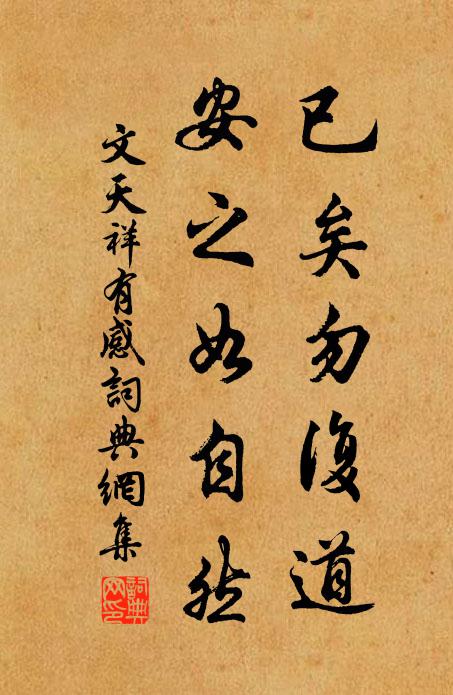 已矣勿復道
安之如自然
文天祥有感詞典網集
詞典网印